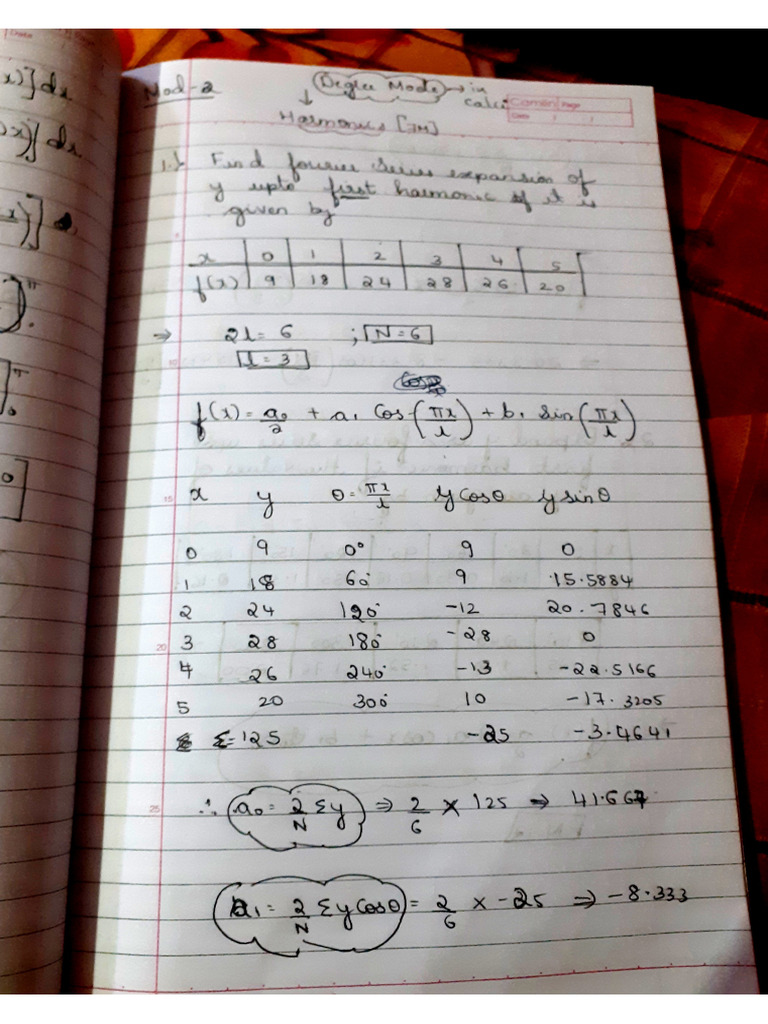 x)}dx
x)}dx
Mod-2
Degree Mode → in calci
Camlin Page
Date / /
↓
Harmonics [7M]
1.} Find fourier series expansion of
y upto first harmonic if it is
given by
x | 0 | 1 | 2 | 3 | 4 | 5
f(x) | 9 | 18 | 24 | 28 | 26 | 20
⇒ 2l = 6 ; N = 6
l = 3
f(x) = a₀/2 + a₁ Cos(πx/l) + b₁ Sin(πx/l)
x y θ = πx/l y Cosθ y sinθ
0 9 0° 9 0
1 18 60° 9 15.5884
2 24 120° -12 20.7846
3 28 180° -28 0
4 26 240° -13 -22.5166
5 20 300° 10 -17.3205
Σ = 125 -25 -3.4641
∴ a₀ = 2/N Σy ⇒ 2/6 × 125 ⇒ 41.667
a₁ = 2/N Σy Cosθ = 2/6 × -25 ⇒ -8.333